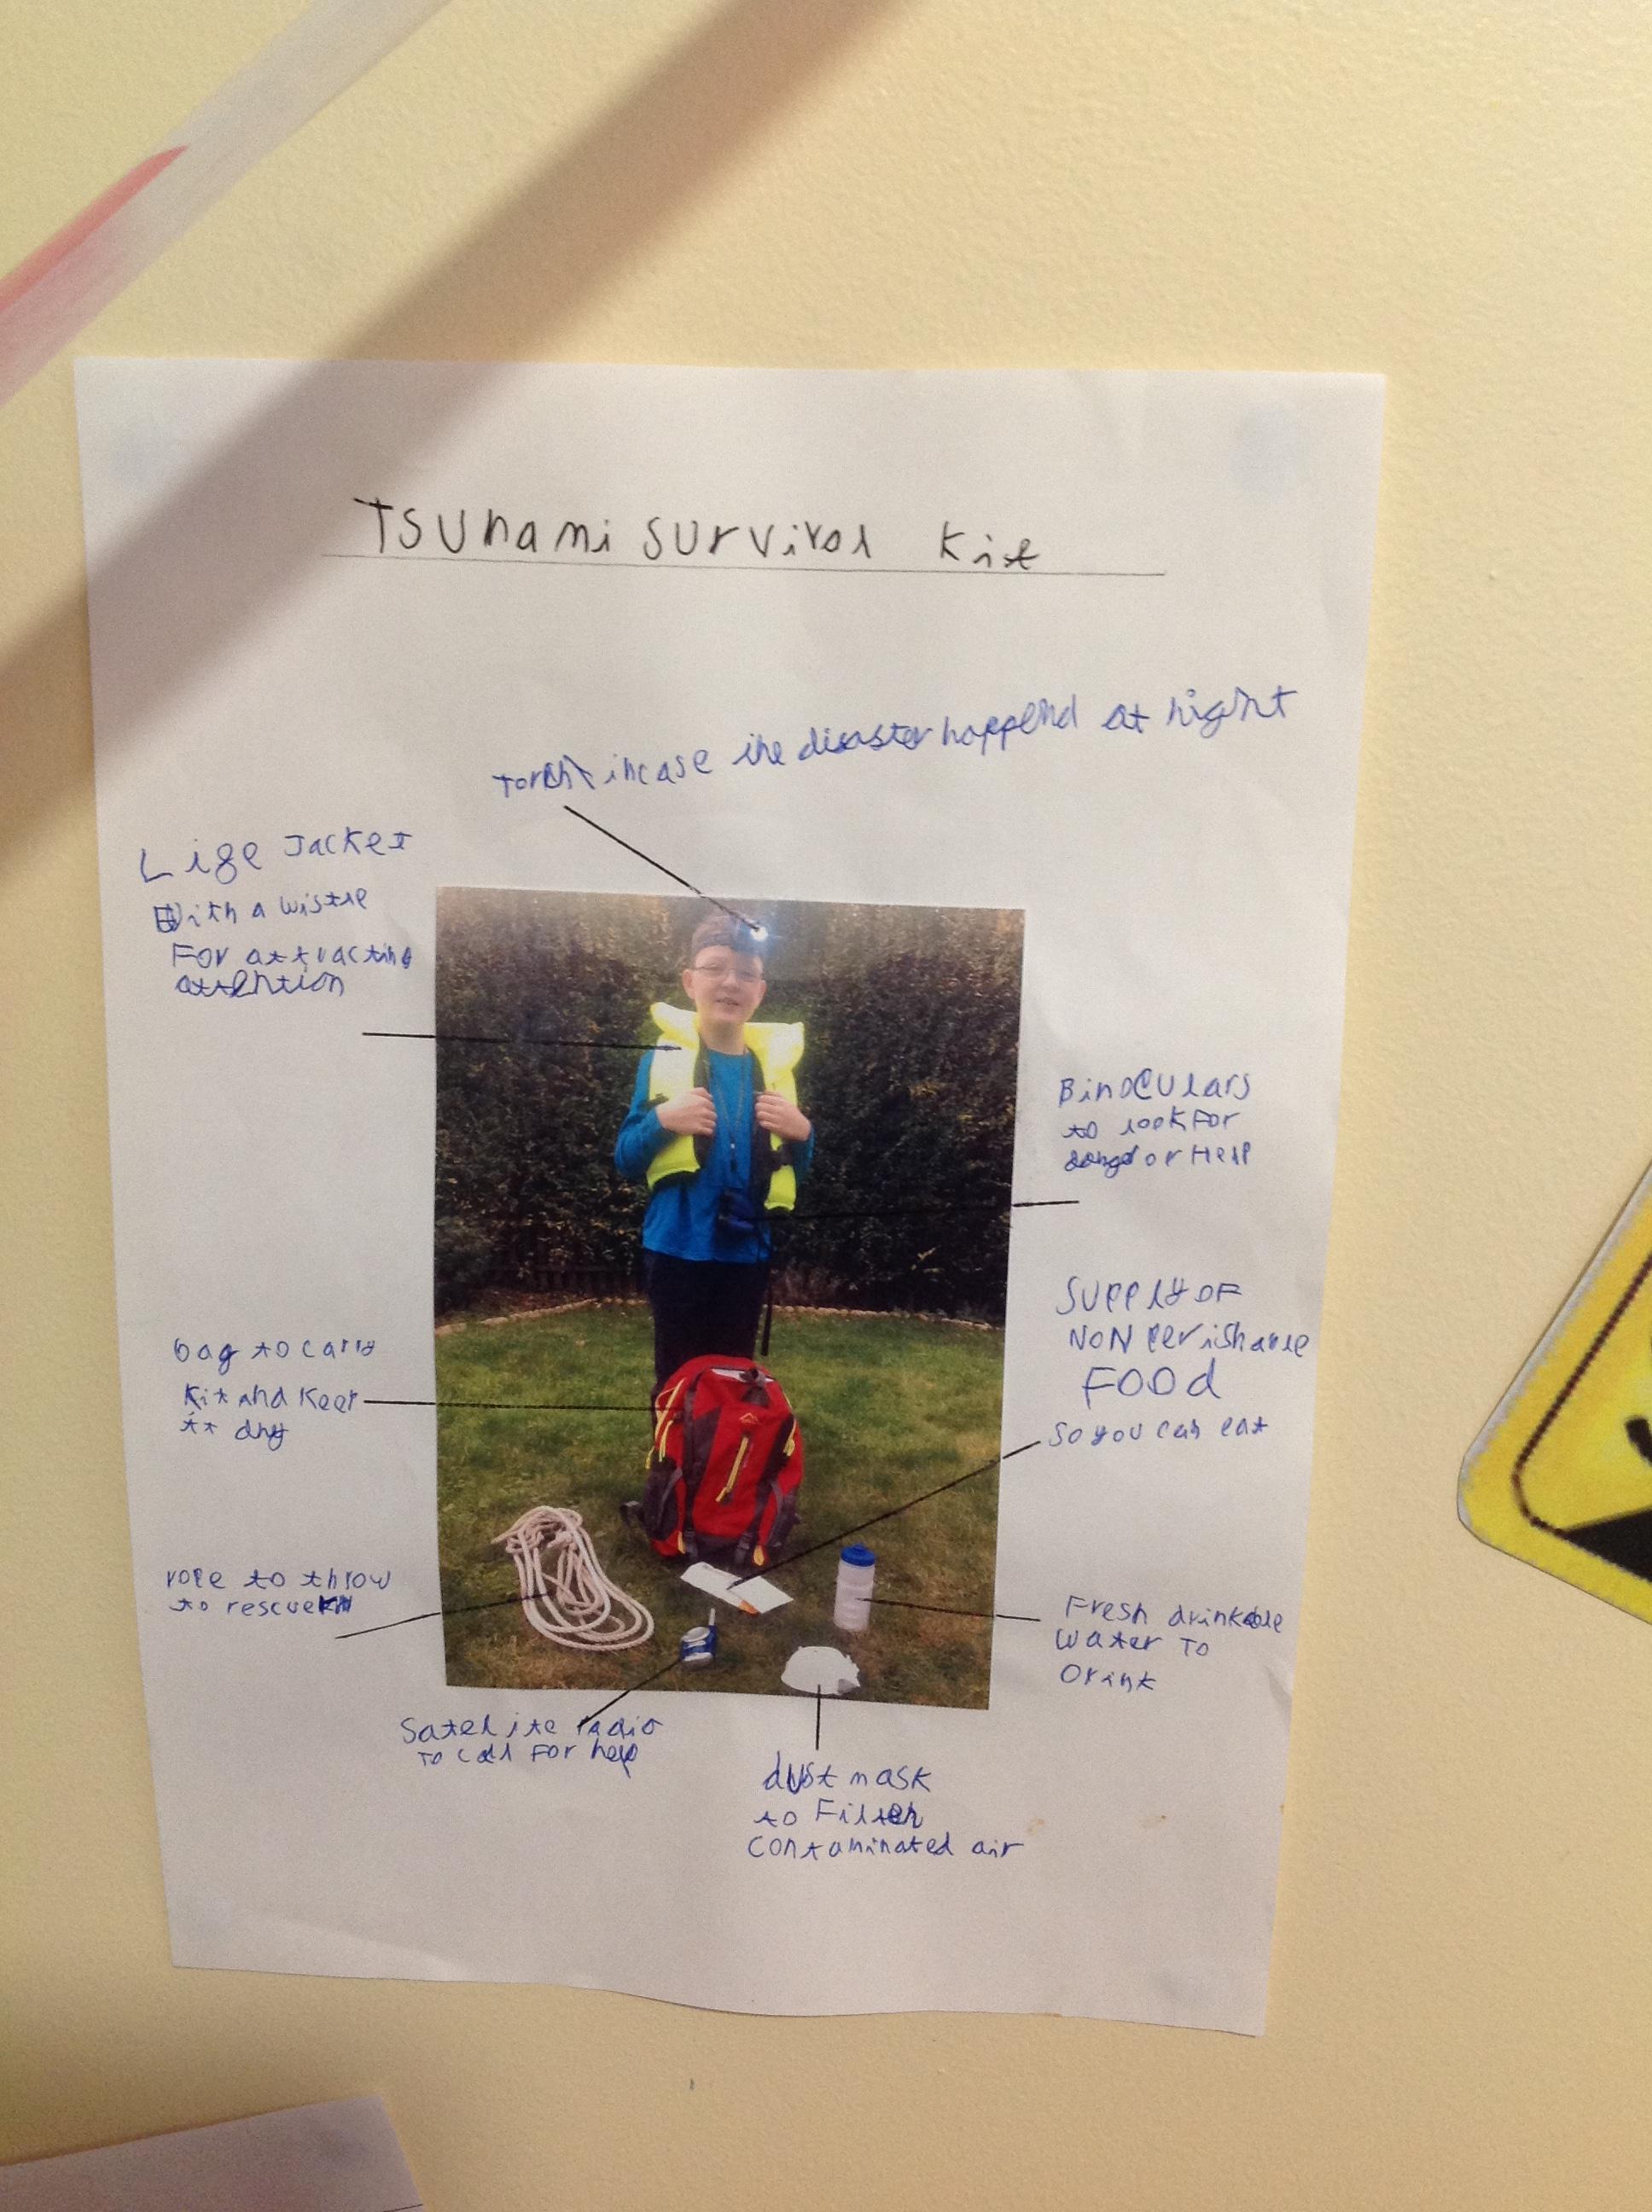 Tsunami survival kit
torch incase the disaster happend at night
Life Jacket
With a wistle
For attracting
attention
Binoculars
to look For
danger or Help
Supply OF
NON perishable
FOOd
so you can eat
bag to carry
Kit and Keep
it dry
rope to throw
to rescue
Fresh drinkable
water To
Drink
Satelite radio
To call For help
dust mask
to Filter
contaminated air